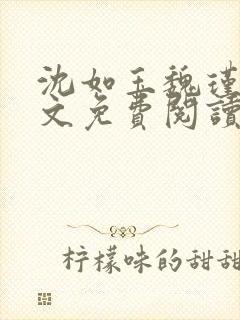 沈如玉魏瑾
文免費閱讀
柠檬味的甜甜